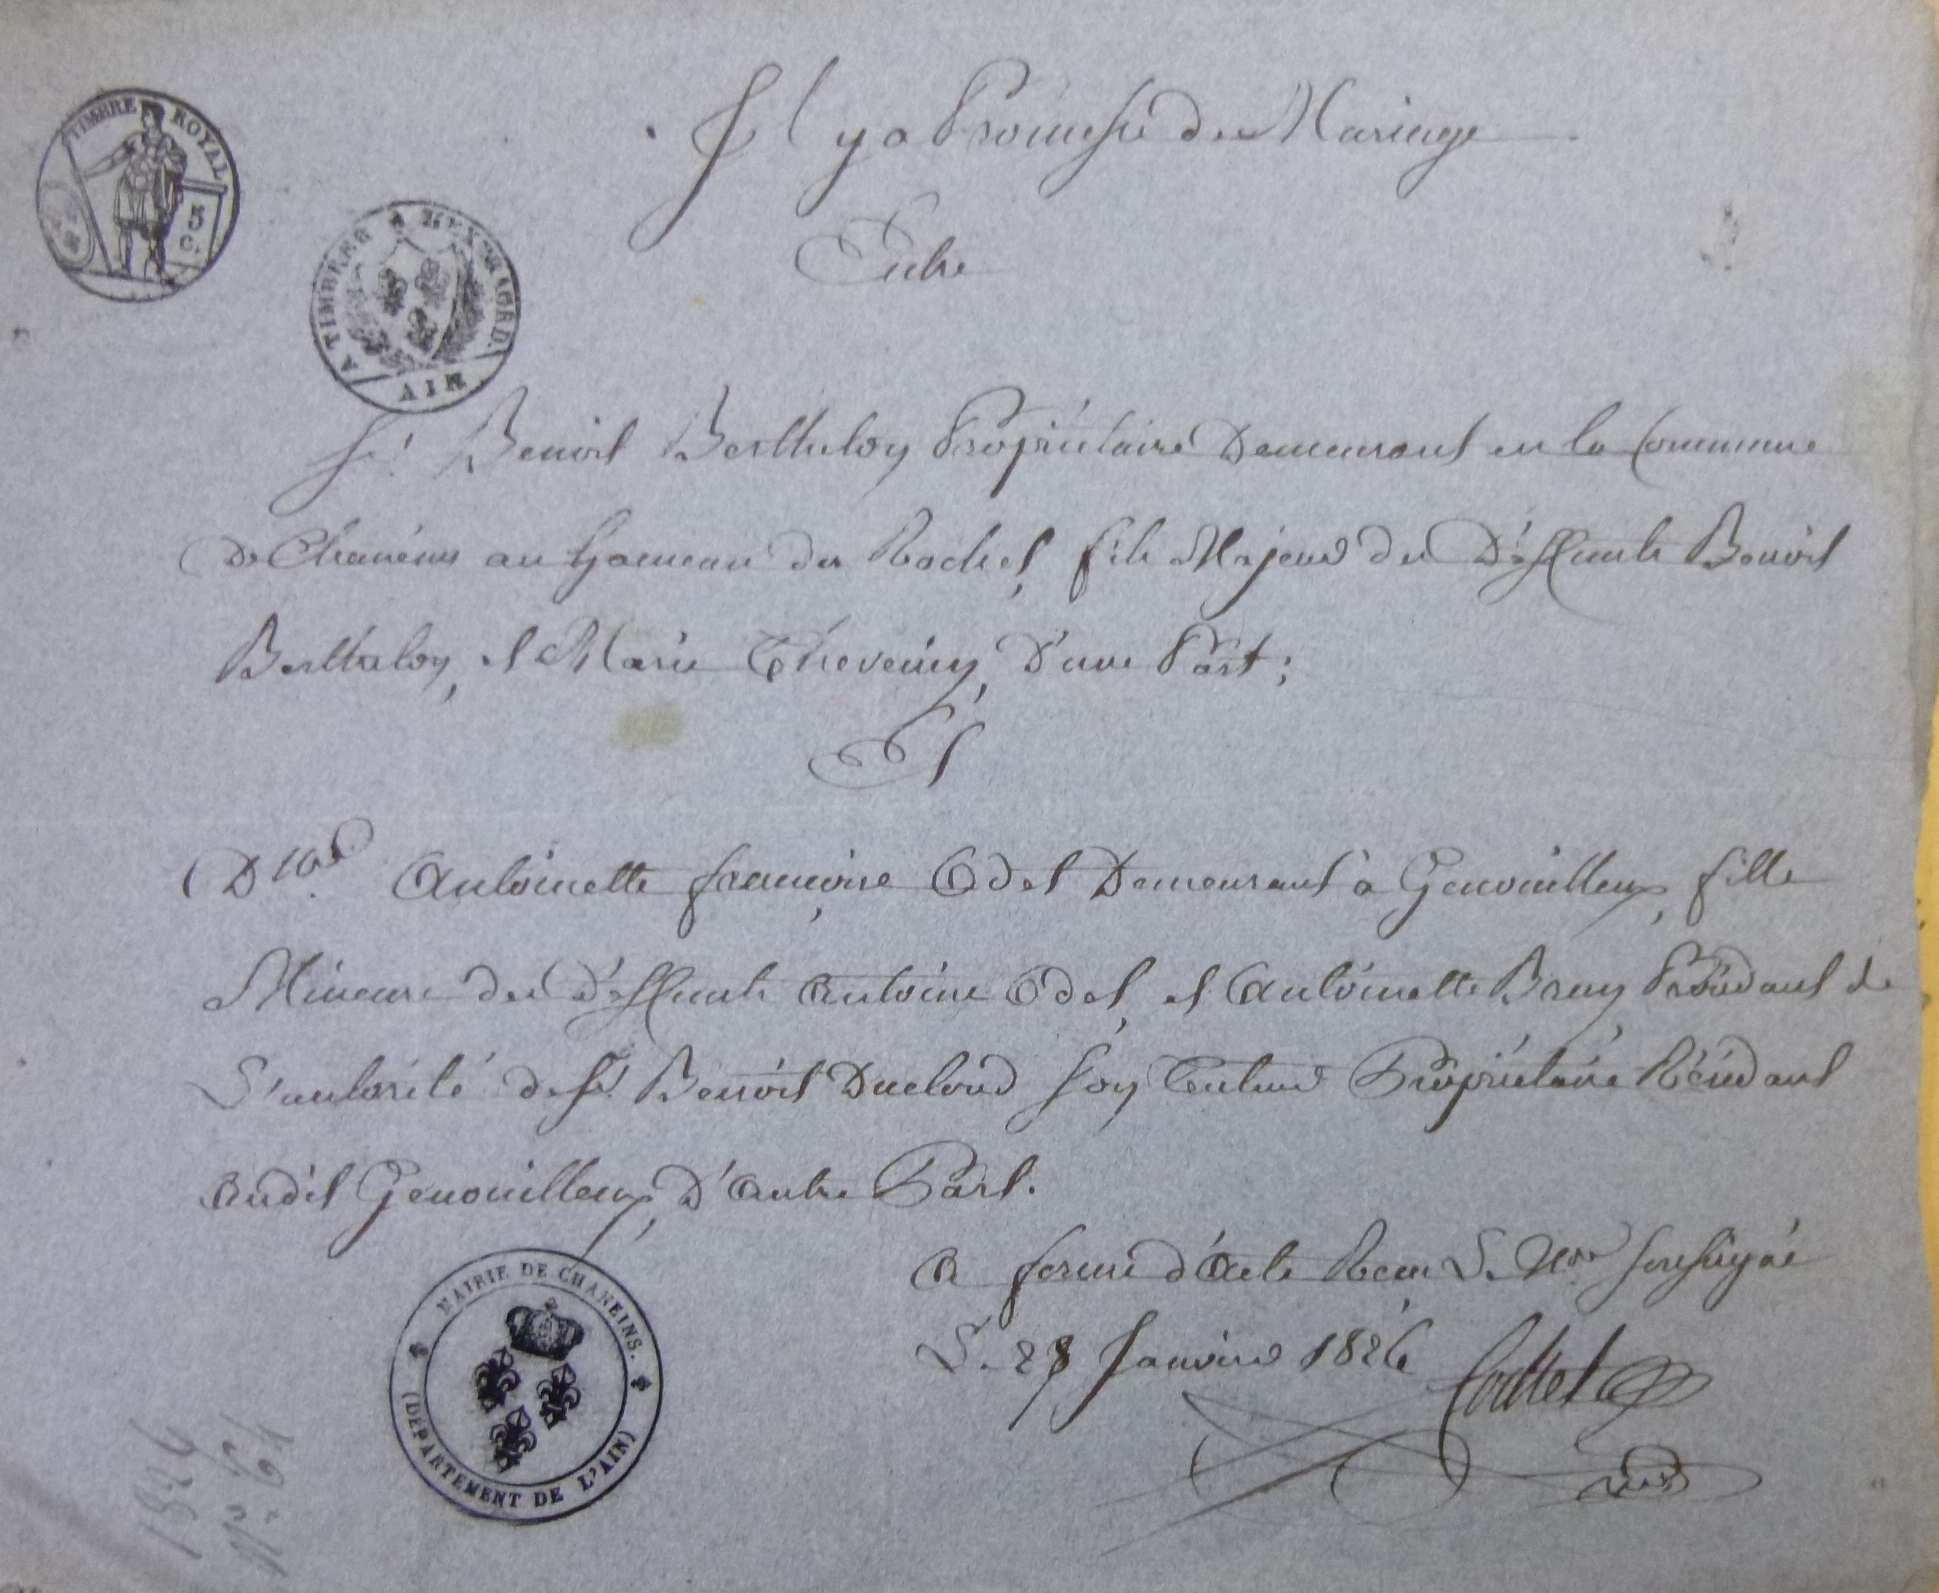 TIMBRE ROYAL
35 C.
A TIMBRER A L'EXTRAORD.
AIN
Il y a Promesse de Mariage
Entre
Sr. Benoit Berthelon Propriétaire Demeurant en la Commune
De Chanéins au hameau du Rochet, fils Majeur des Défunts Benoit
Berthelon, et Marie Thevenin, D'une Part;
Et
Dlle. Antoinette françoise Odet Demeurant à Genouilleux, fille
Mineure des défunts Antoine Odet, et Antoinette Brun Procédant de
L'autorité de Sr. Benoit Ducloud son Tuteur Propriétaire Résident
audit Genouilleux, D'autre Part.
a forme d'acte Recu Le Nre soussigné
Le Janvier 1826
MAIRIE DE CHANEINS.
(DÉPARTEMENT DE L'AIN)
1826